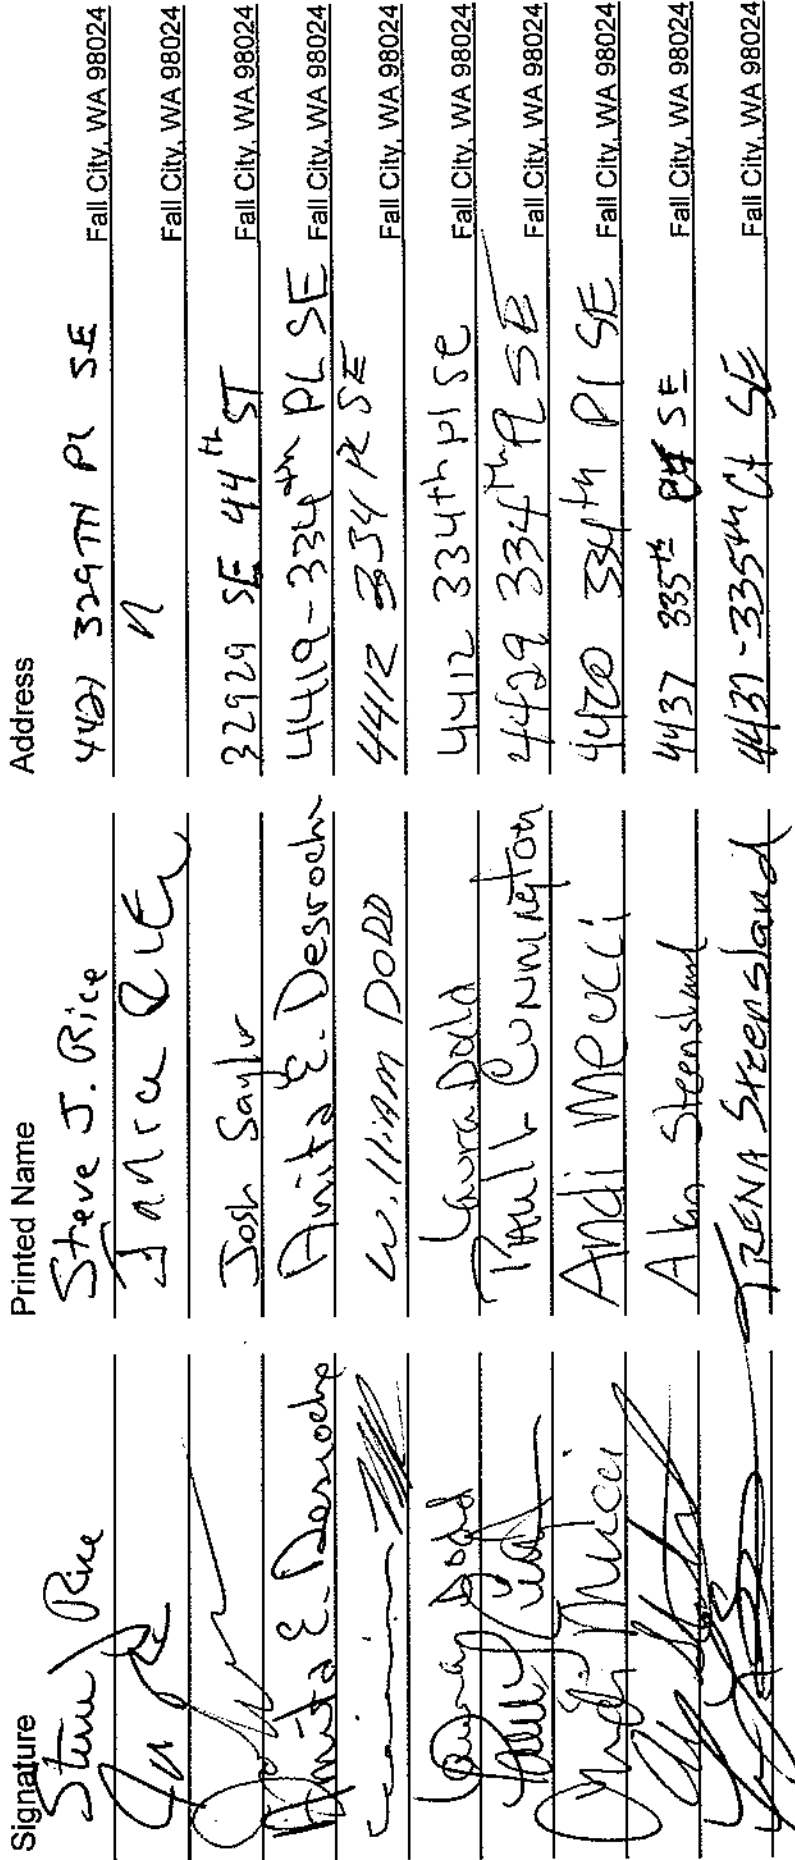 Signature Printed Name Address
Steve Rice Steve J. Rice 4427 329TH PL SE Fall City, WA 98024
Janice Rice " Fall City, WA 98024
Josh Saylor 32929 SE 44th ST Fall City, WA 98024
Anita E. Desroche Anita E. Desroche 4419-334th PL SE Fall City, WA 98024
William DODD 4412 334 PL SE Fall City, WA 98024
Laura Dodd Laura Dodd 4412 334th pl se Fall City, WA 98024
Paul Cunnington 4429 334th PL SE Fall City, WA 98024
Andi Meucci Andi Meucci 4420 334th Pl SE Fall City, WA 98024
Alan Steensland 4437 335th SE Fall City, WA 98024
TRENA Steensland 4437-335th Ct SE Fall City, WA 98024